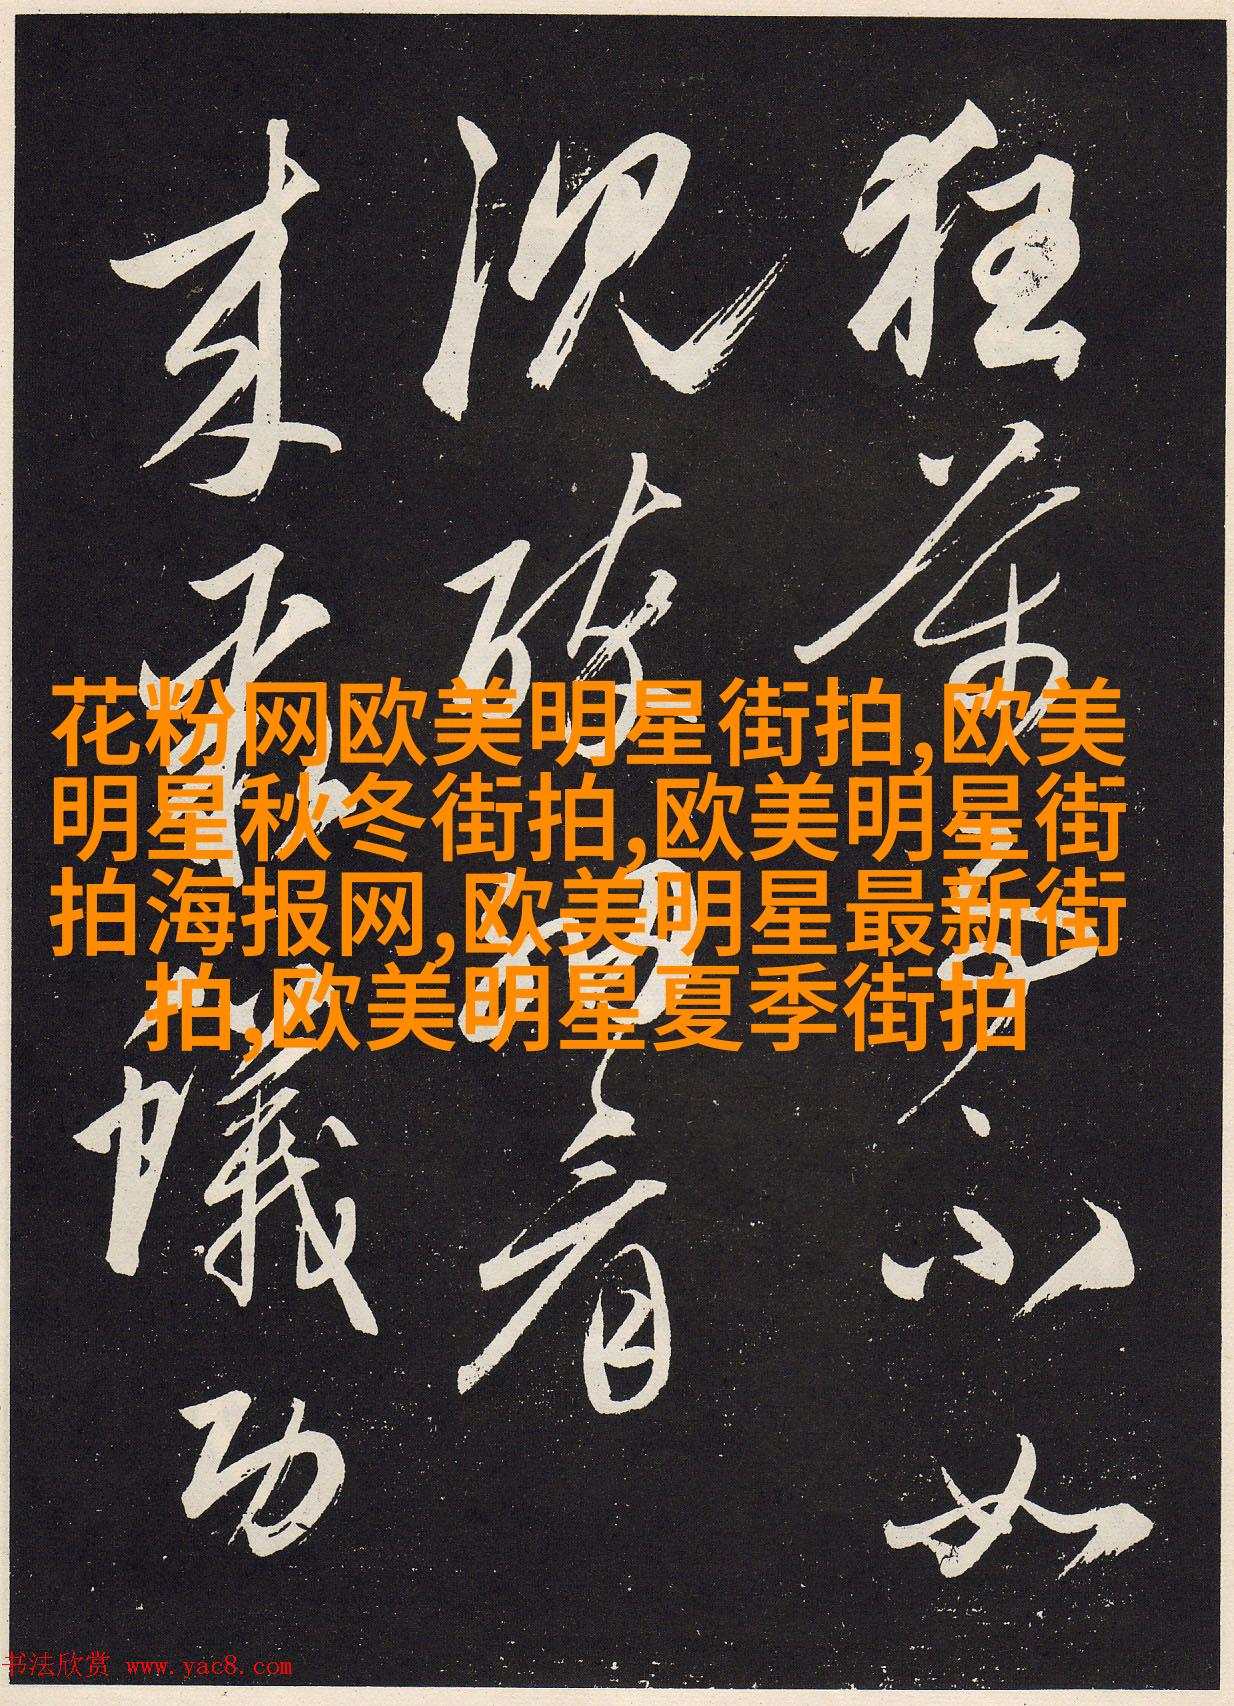 狂不如
看
来蟻功
花粉网欧美明星街拍,欧美
明星秋冬街拍,欧美明星街
拍海报网,欧美明星最新街
拍,欧美明星夏季街拍
书法欣赏 www.yac8.com